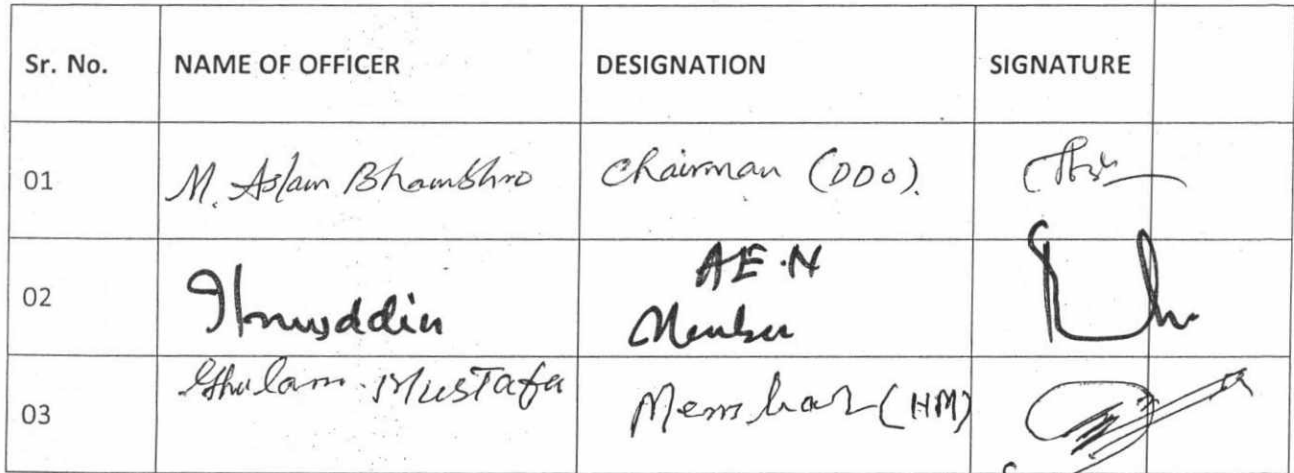 Sr. No. NAME OF OFFICER DESIGNATION SIGNATURE
01 M. Aslam Bhambhro Chairman (DDO).
A.E.N
02 Member
Ghulam Mustafa
03 Member (HM)